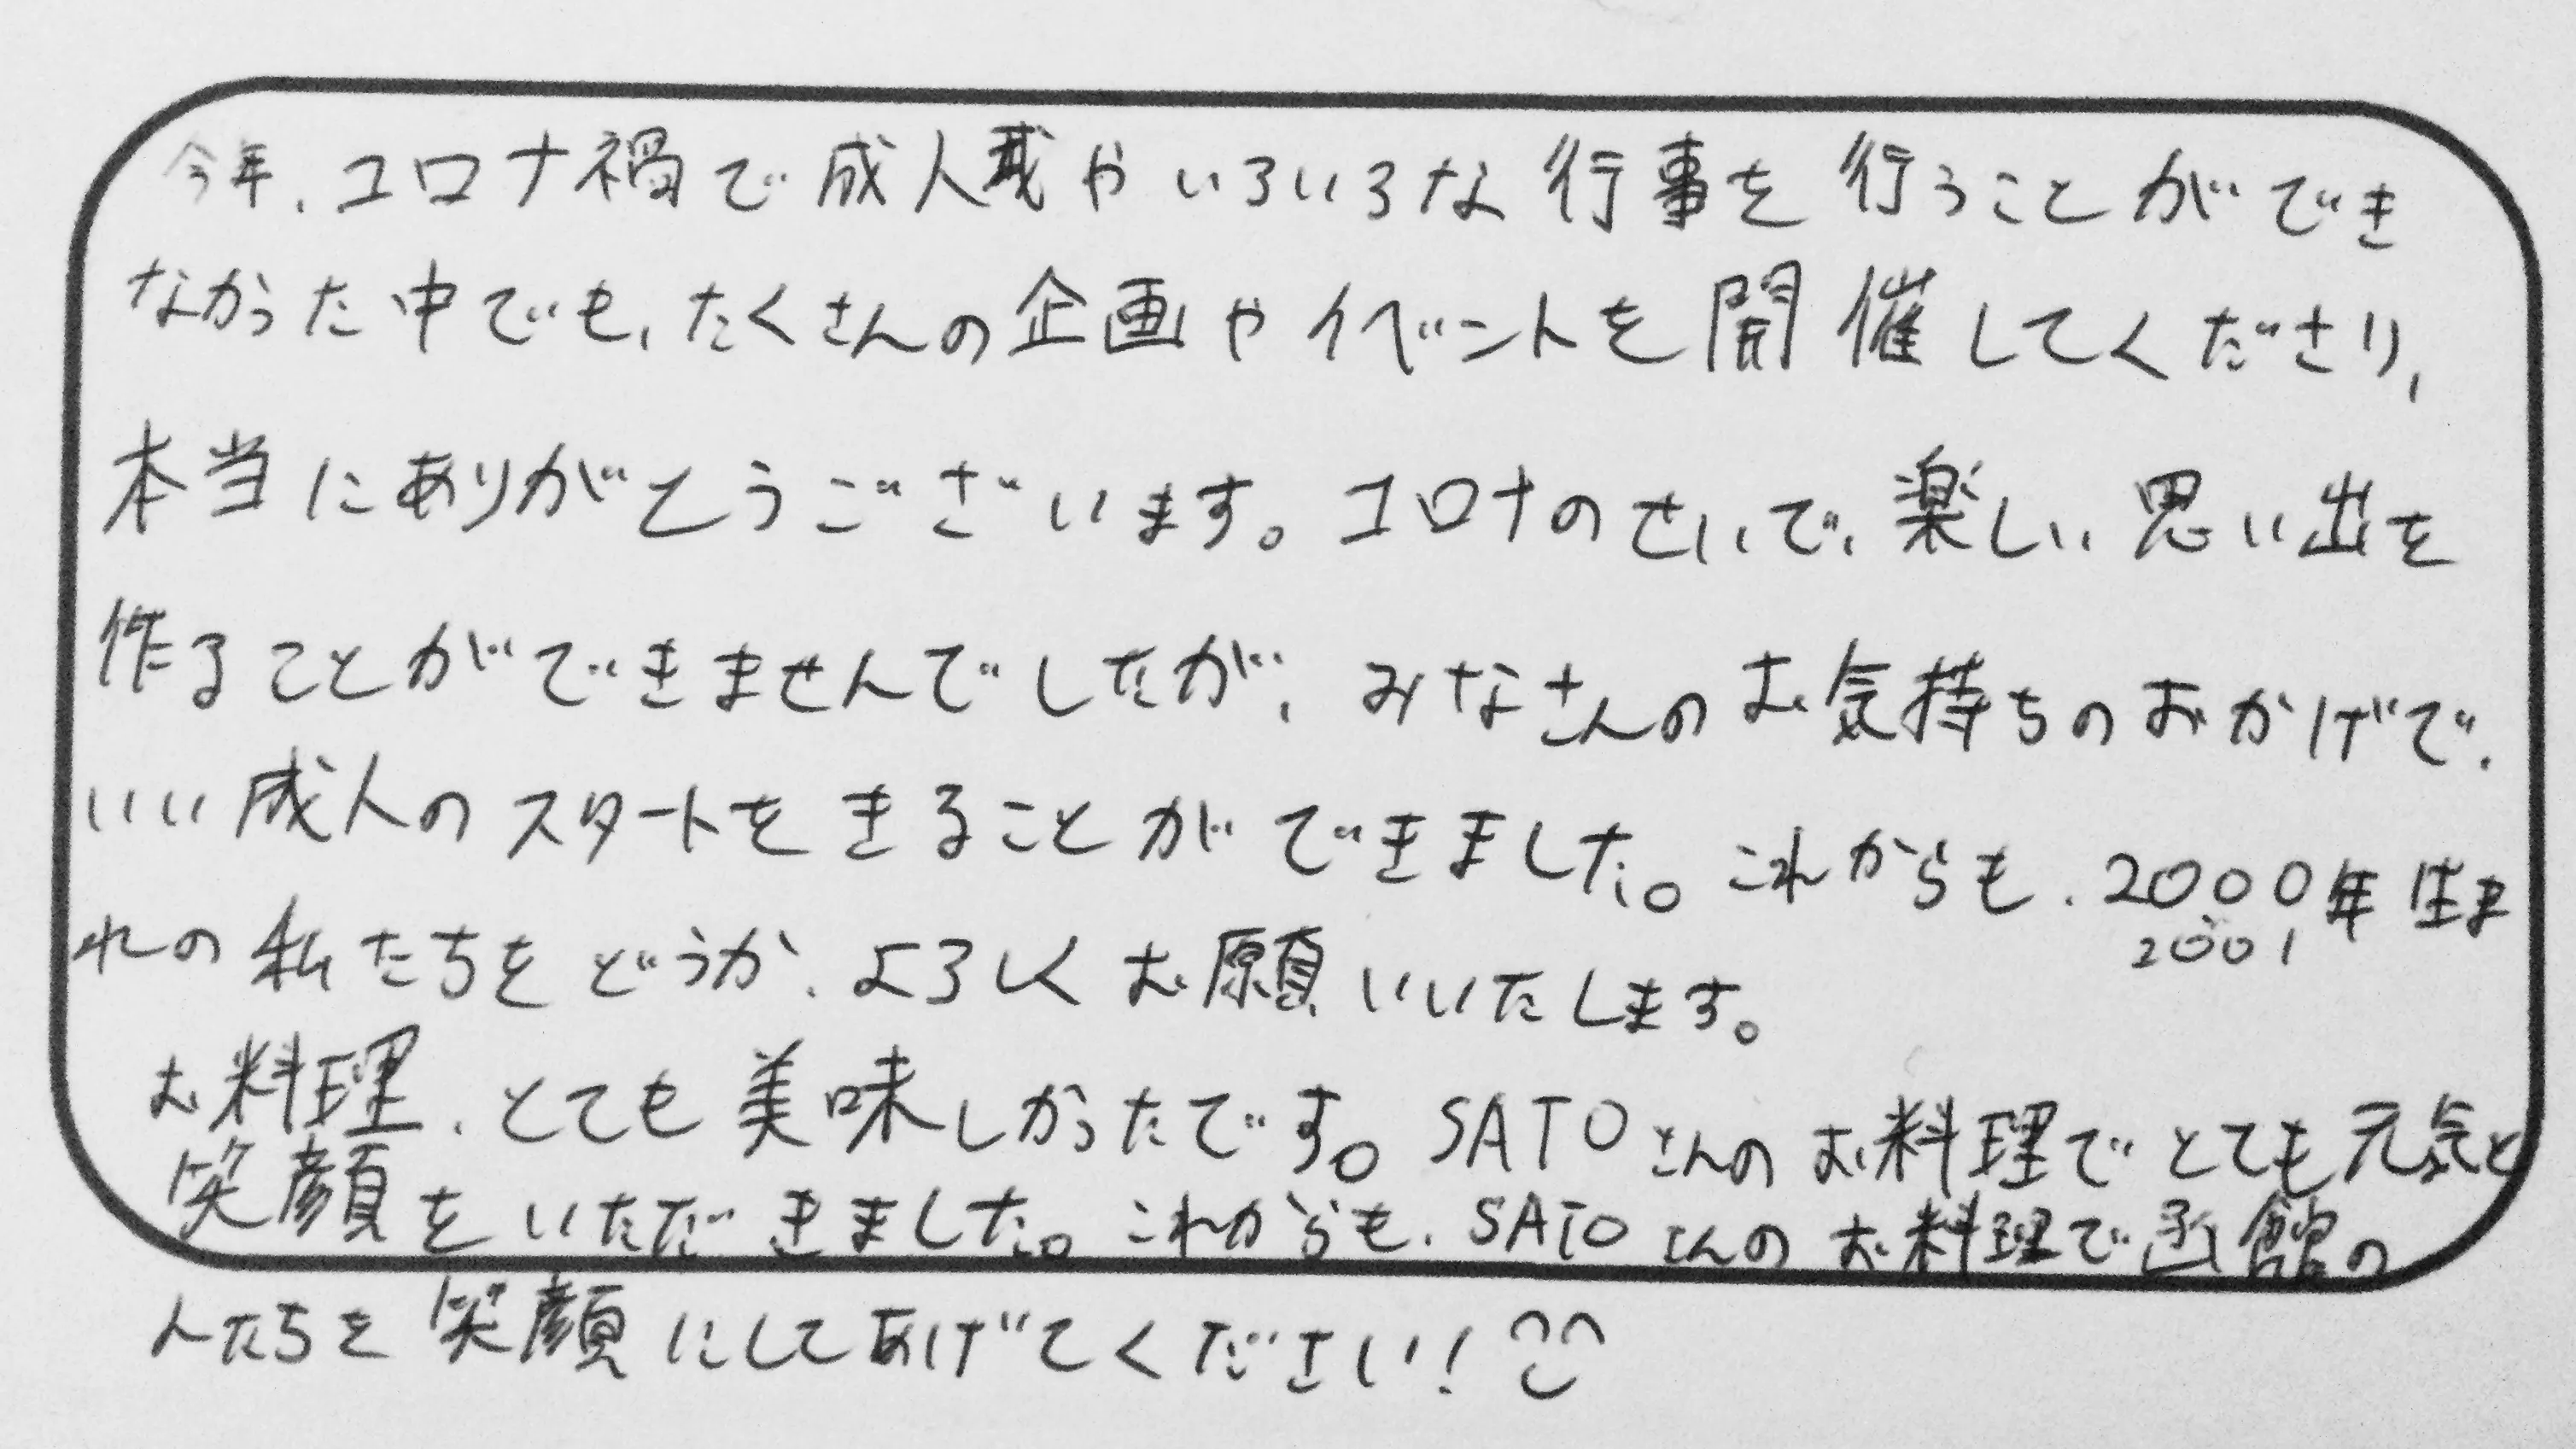 今年、コロナ禍で成人式やいろいろな行事を行うことができ
なかった中でも、たくさんの企画やイベントを開催してくださり、
本当にありがとうございます。コロナのせいで、楽しい思い出を
作ることができませんでしたが、みなさんのお気持ちのおかげで、
いい成人のスタートをきることができました。これからも、2000年生ま
2001
れの私たちをどうか、よろしくお願いいたします。
お料理、とても美味しかったです。SATOさんのお料理でとても元気と
笑顔をいただきました。これからも、SATOさんのお料理で函館の
人たちを笑顔にしてあげてください!